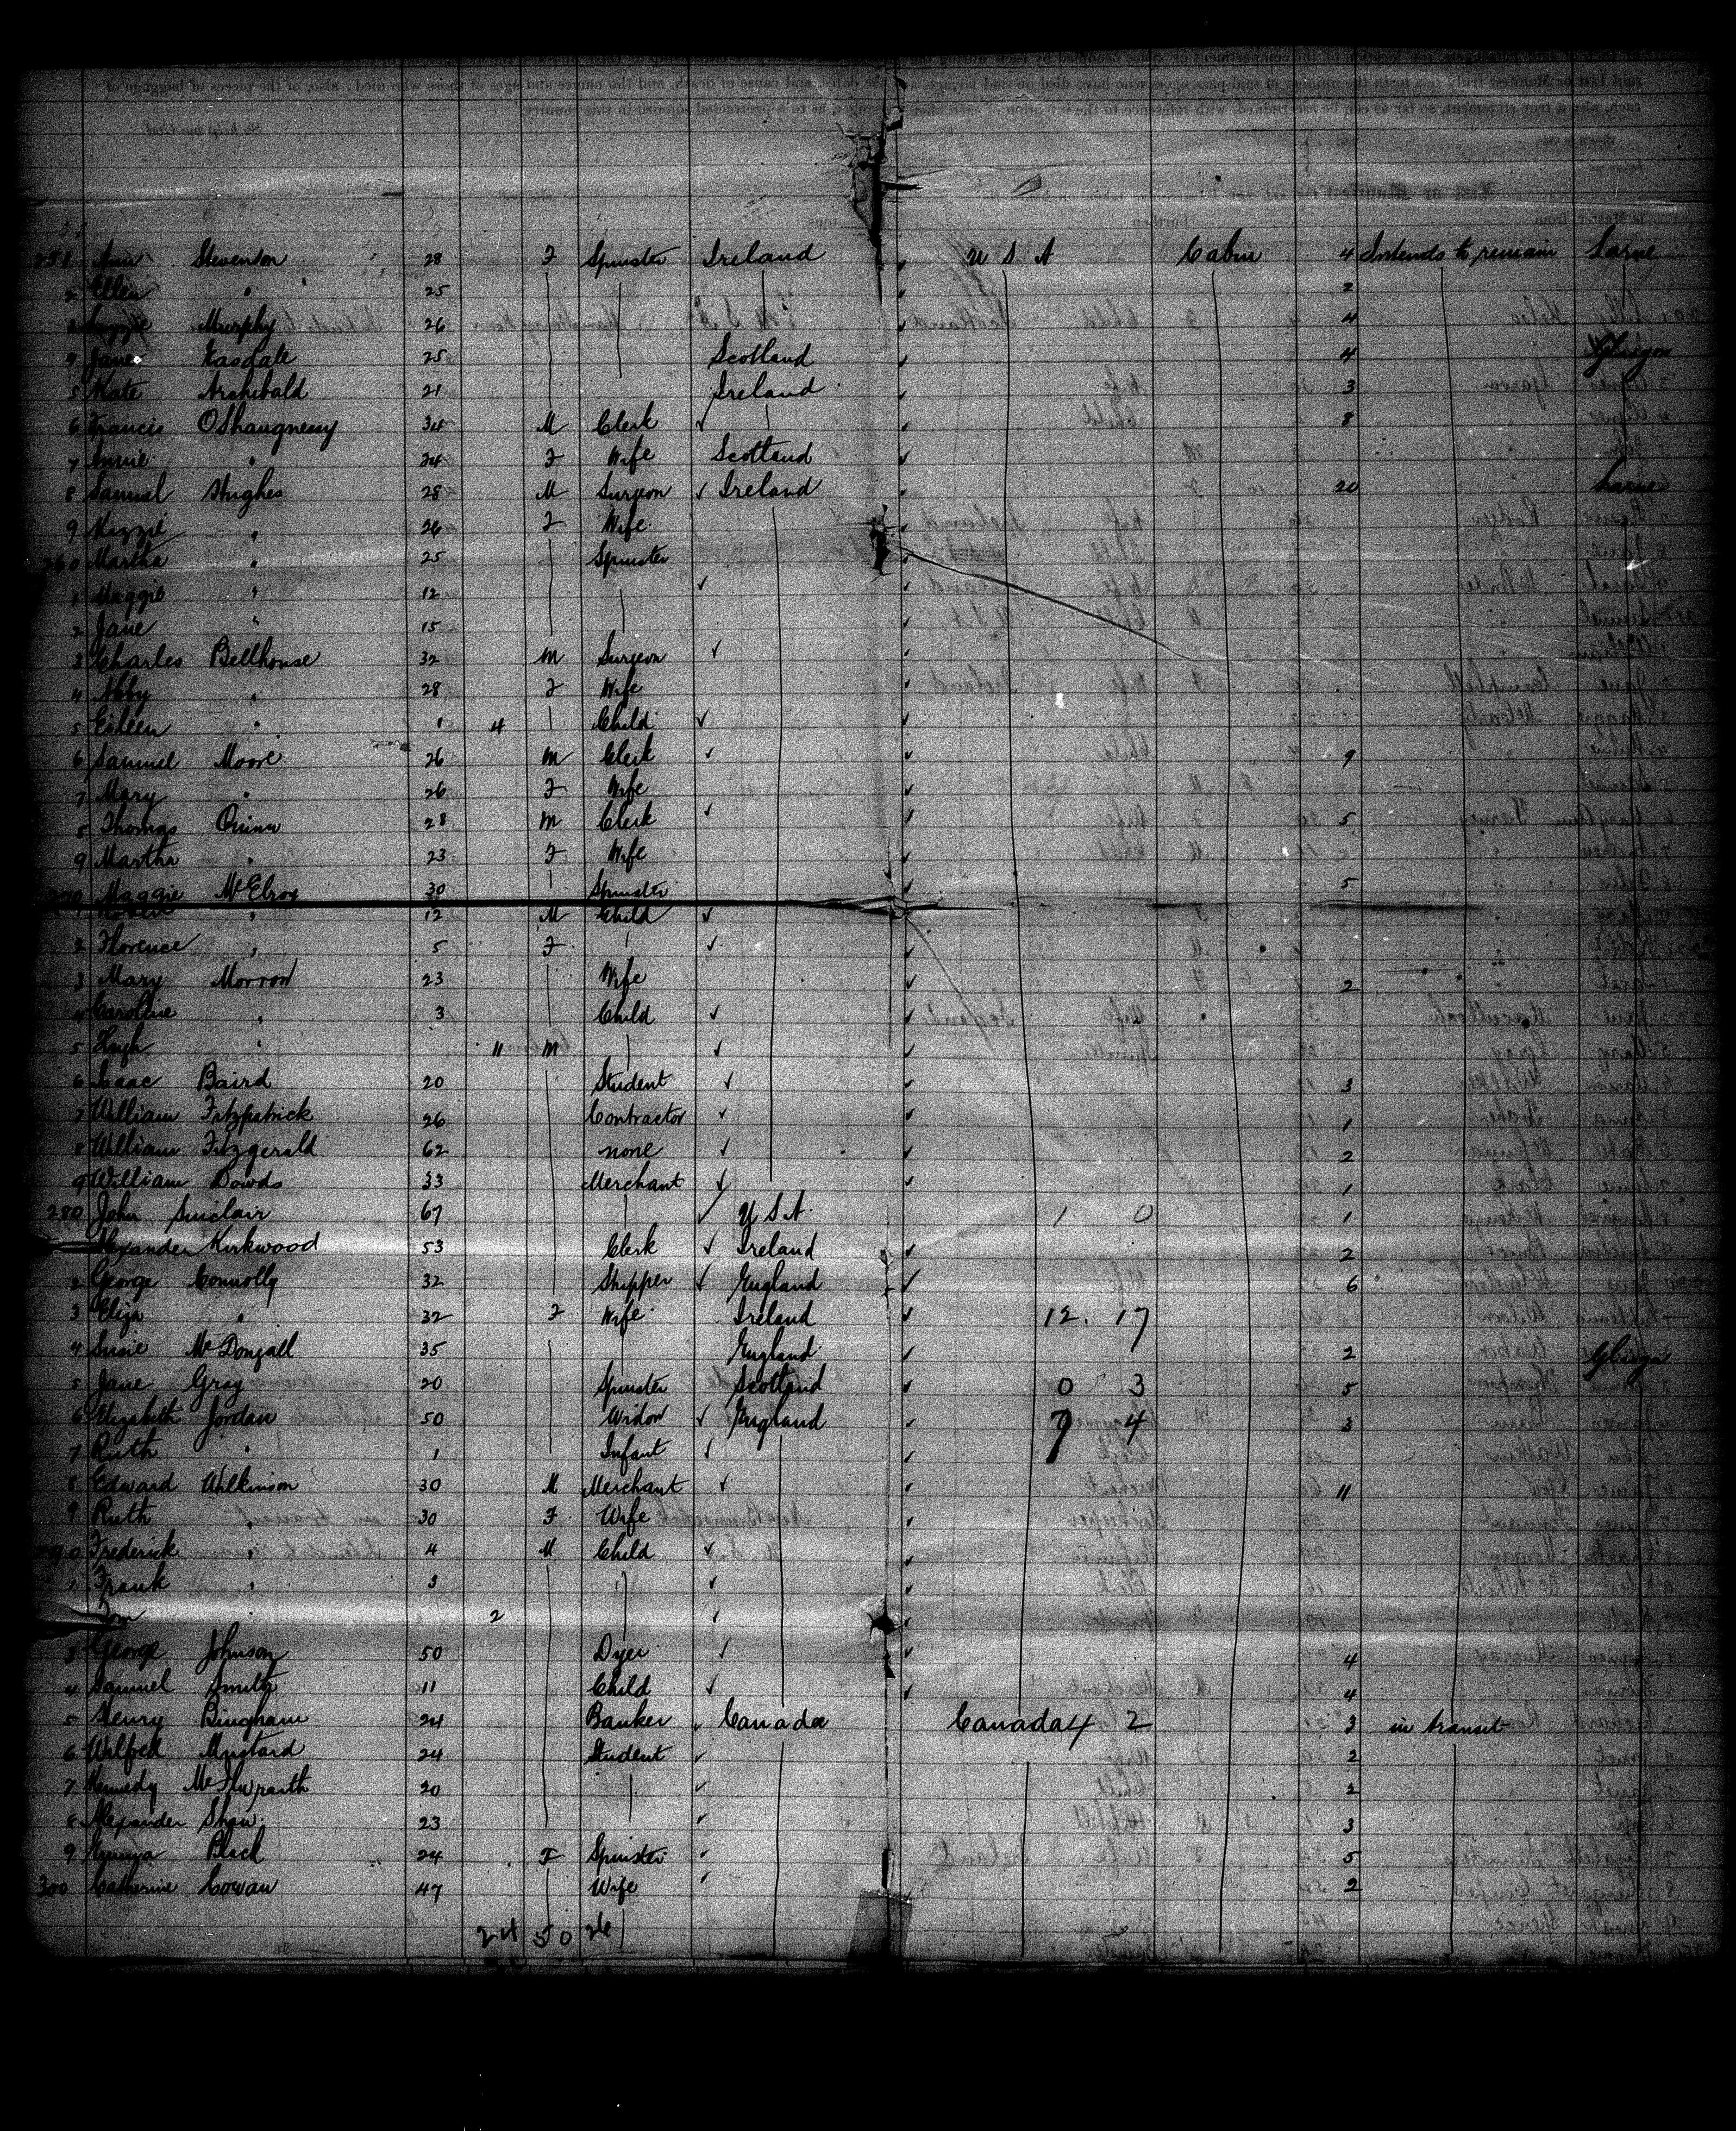 251 Ann Stevenson 28 F Spinster Ireland U S A Cabin 4 Intends to remain Larne
2 Ellen " 25 2
3 Murphy 26 4
4 Jane Kasdale 25 Scotland 4 Glasgow
5 Kate Archibald 21 Ireland 3
6 Francis OShaugnessy 34 M Clerk 8
7 Annie " 24 F Wife Scotland
8 Samuel Hughes 28 M Surgeon Ireland 20 Larne
9 Lizzie " 26 F Wife
260 Martha " 25 Spinster
1 Maggie " 12
2 Jane " 15
3 Charles Bellhouse 32 M Surgeon
4 Abby " 28 F Wife
5 Eileen " 1 4 Child
6 Samuel Moore 26 M Clerk 9
7 Mary " 26 F Wife
8 Thomas Quinn 28 M Clerk 5
9 Martha " 23 F Wife
270 Maggie McElroy 30 Spinster 5
1 " 12 M Child
2 Florence " 5 F
3 Mary Morrow 23 Wife 2
4 Caroline " 3 Child
5 Hugh " 11 M
6 Isaac Baird 20 Student 3
7 William Fitzpatrick 26 Contractor 1
8 William Fitzgerald 62 none 2
9 William Dowds 33 Merchant 1
280 John Sinclair 67 U S A 1 0 1
Alexander Kirkwood 53 Clerk Ireland 2
2 George Connolly 32 Shipper England 6
3 Eliza " 32 F Wife Ireland 12. 17
4 Susie McDongall 35 England 2 Glasgo
5 Jane Gray 20 Spinster Scotland 0 3 5
6 Elizabeth Jordan 50 Widow England 9 4 3
7 Ruth " 1 Infant
8 Edward Wilkinson 30 M Merchant 11
9 Ruth " 30 F Wife
290 Frederick " 4 M Child
1 Frank " 3
Tom " 2
3 George Johnson 50 Dyer 4
4 Samuel Smith 11 Child 4
5 Henry Bingham 24 Banker Canada Canada 4 2 3 in transit
6 Wilfred Mustard 24 Student 2
7 Kennedy McIlwraith 20 2
8 Alexander Shaw 23 3
9 Black 24 F Spinster 5
300 Catherine Cowan 47 Wife 2
24 50 26